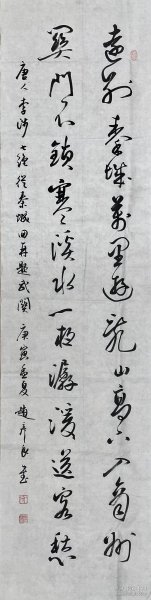 遠别秦城萬里遊亂山高下入商州
關門不鎖寒溪水一夜潺湲送客愁
唐人李涉七絶從秦城回再題武關 庚寅孟夏 趙彦良書